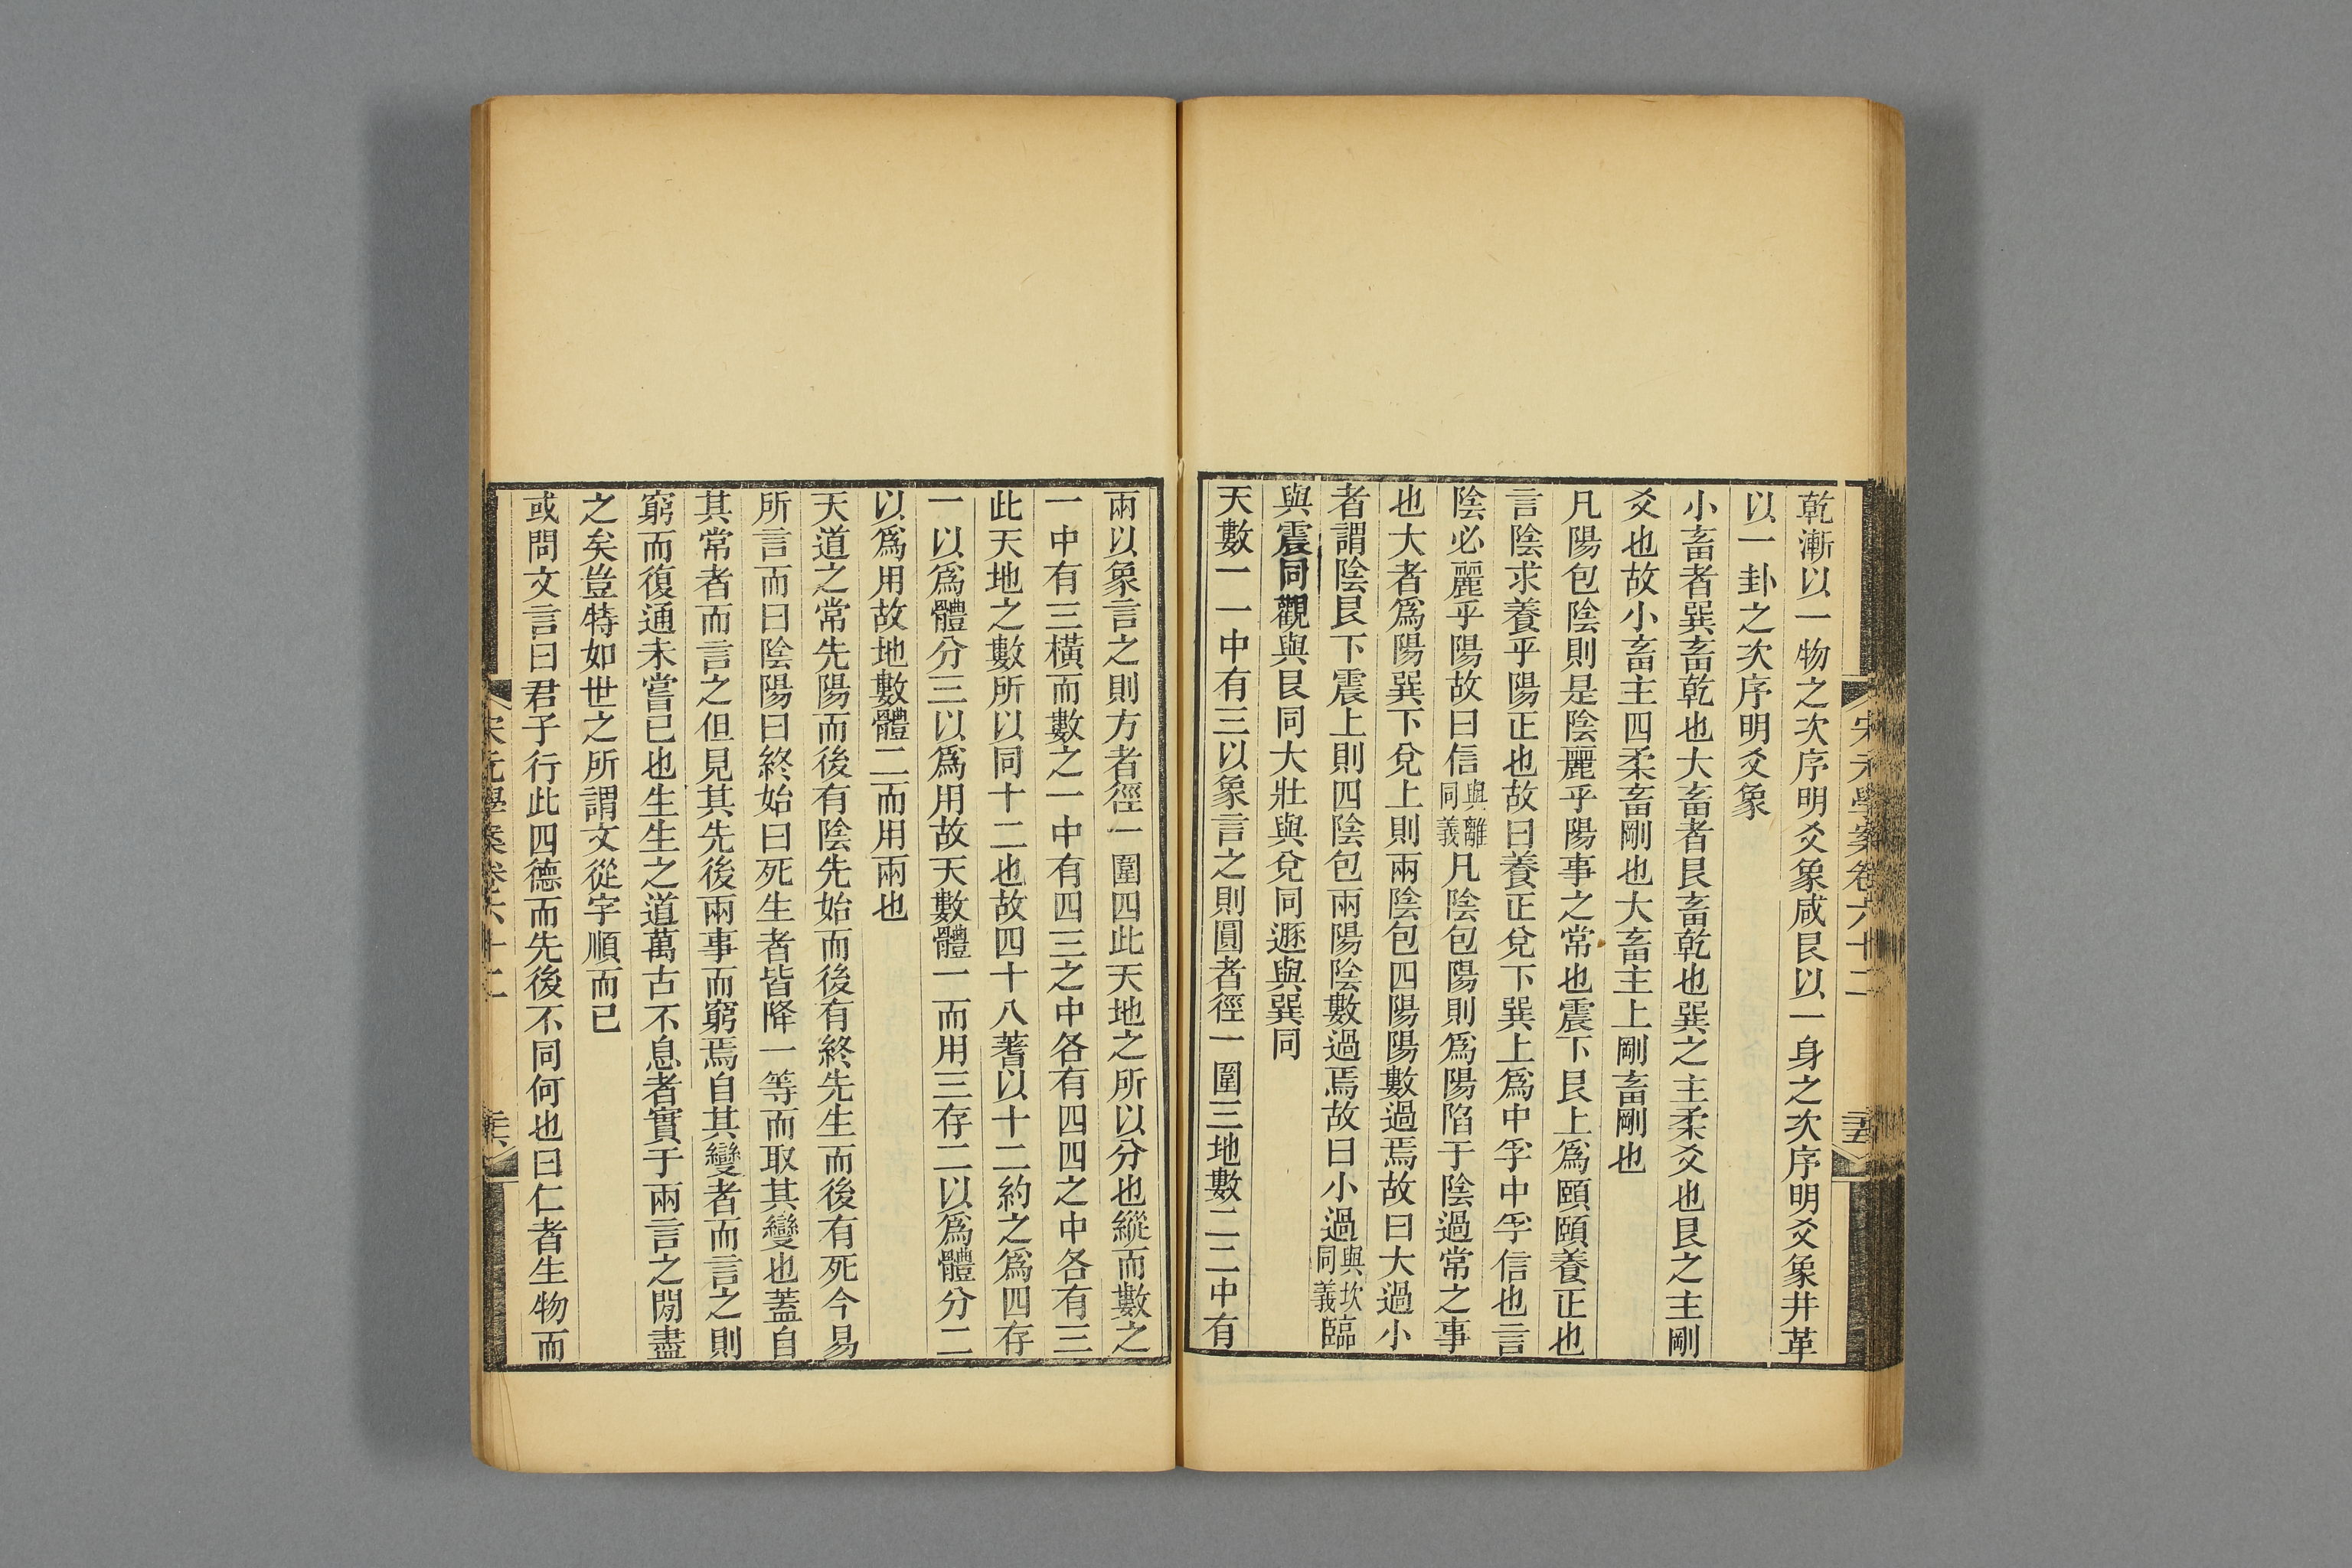 宋元學案卷六十二
乾漸以一物之次序明爻象咸艮以一身之次序明爻象井革
以一卦之次序明爻象
小畜者巽畜乾也大畜者艮畜乾也巽之主柔爻也艮之主剛
爻也故小畜主四柔畜剛也大畜主上剛畜剛也
凡陽包陰則是陰麗乎陽事之常也震下艮上爲頤頤養正也
言陰求養乎陽正也故曰養正兌下巽上爲中孚中孚信也言
陰必麗乎陽故曰信與離同義凡陰包陽則爲陽陷于陰過常之事
也大者爲陽巽下兌上則兩陰包四陽陽數過焉故曰大過小
者謂陰艮下震上則四陰包兩陽陰數過焉故曰小過與坎同義臨
與震同觀與艮同大壯與兌同遯與巽同
天數一一中有三以象言之則圓者徑一圍三地數二二中有
兩以象言之則方者徑一圍四此天地之所以分也縱而數之
一中有三橫而數之一中有四三之中各有四四之中各有三
此天地之數所以同十二也故四十八蓍以十二約之爲四存
一以爲體分三以爲用故天數體一而用三存二以爲體分二
以爲用故地數體二而用兩也
天道之常先陽而後有陰先始而後有終先生而後有死今易
所言而曰陰陽曰終始曰死生者皆降一等而取其變也蓋自
其常者而言之但見其先後兩事而窮焉自其變者而言之則
窮而復通未嘗已也生生之道萬古不息者實于兩言之閒盡
之矣豈特如世之所謂文從字順而已
或問文言曰君子行此四德而先後不同何也曰仁者生物而
宋元學案卷六十二